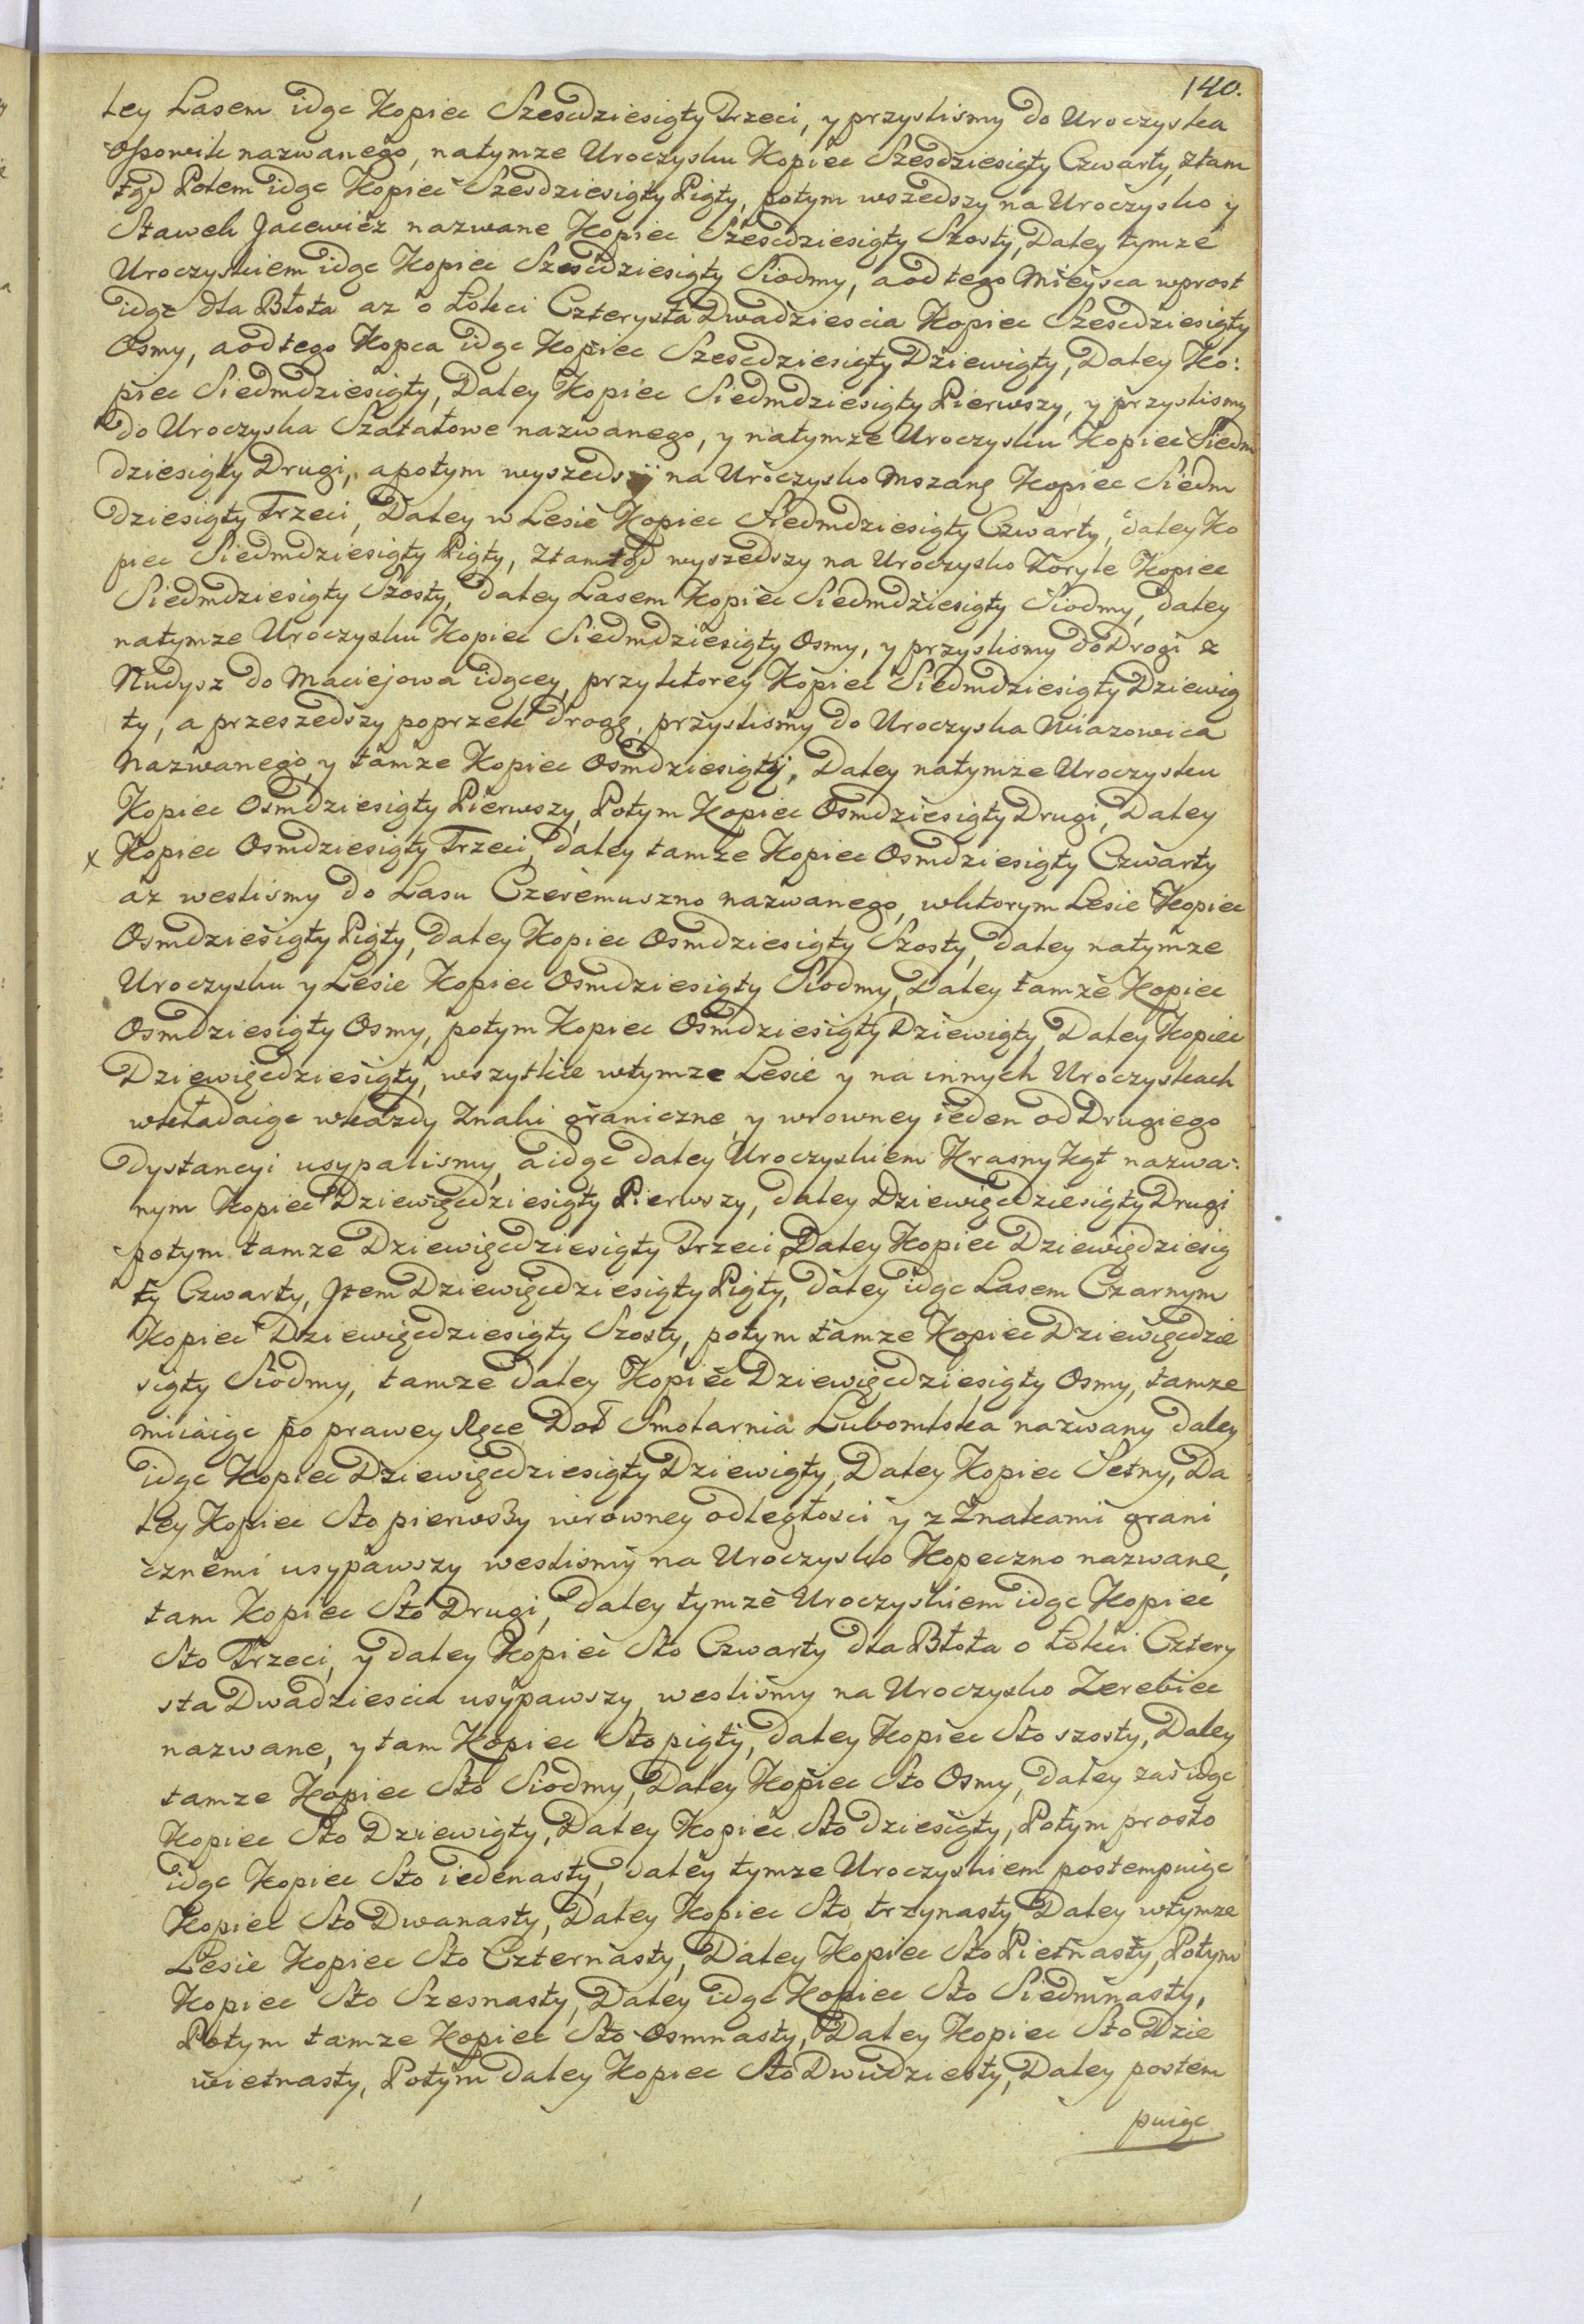 140.
ley Lasem idąc Kopiec Szescdziesiąty Trzeci, y przyslismy do Uroczyska
Ossowik nazwanego, natymze Uroczysku Kopiec Szesdziesiąty Czwarty, ztam
tąd Polem idąc Kopiec Szesdziesiąty Piąty, potym wszedszy na Uroczysko y
Stawek Jacewicz nazwane Kopiec Szescdziesiąty Szosty, Daley tymze
Uroczyskiem idąc Kopiec Szescdziesiąty Siodmy, aod tego Mieysca wprost
idąc dla Błota az o Łokci Czterysta Dwadziescia Kopiec Szescdziesiąty
Osmy, aodtego Kopca idąc Kopiec Szescdziesiąty Dziewiąty, Daley Ko:
piec Siedmdziesiąty, Daley Kopiec Siedmdziesiąty Pierwszy, y przyslismy
do Uroczyska Szałatowe nazwanego, y natymze Uroczysku Kopiec Siedm
dziesiąty Drugi, apotym wyszedszy na Uroczysko Mszanę Kopiec Siedm
dziesiąty Trzeci, Daley w Lesie Kopiec Siedmdziesiąty Czwarty, daley Ko
piec Siedmdziesiąty Piąty, ztamtąd wyszedszy na Uroczysko Toryle Kopiec
Siedmdziesiąty Szosty, daley Lasem Kopiec Siedmdziesiąty Siodmy, daley
natymze Uroczysku Kopiec Siedmdziesiąty Osmy, y przyslismy do Drogi z
Nudysz do Maciejowa idącey, przyktorey Kopiec Siedmdziesiąty Dziewią
ty, a przeszedszy poprzek drogę, przyslismy do Uroczyska Wiazowica
Nazwanego, y tamze Kopiec Osmdziesiąty, Daley natymze Uroczysku
Kopiec Osmdziesiąty Pierwszy, Potym Kopiec Osmdziesiąty Drugi, Daley
x Kopiec Osmdziesiąty Trzeci, daley tamze Kopiec Osmdziesiąty Czwarty
az weslismy do Lasu Czeremuszno nazwanego, wktorym Lesie Kopiec
Osmdziesiąty Piąty, daley Kopiec Osmdziesiąty Szosty, daley natymze
Uroczysku y Lesie Kopiec Osmdziesiąty Siodmy, Daley tamze Kopiec
Osmdziesiąty Osmy, potym Kopiec Osmdziesiąty Dziewiąty, Daley Kopiec
Dziewięcdziesiąty, wszytkie wtymze Lesie y na innych Uroczyskach
wkładaiąc wkazdy Znaki graniczne, y wrowney ieden od Drugiego
dystancyi usypalismy, a idąc daley Uroczyskiem Krasny Kąt nazwa:
nym Kopiec Dziewięcdziesiąty Pierwszy, daley Dziewięcdziesiąty Drugi
potym tamze Dziewięcdziesiąty Trzeci, Daley Kopiec Dziewięcdziesią
ty Czwarty, Jtem Dziewięcdziesiąty Piąty, daley idąc Lasem Czarnym
Kopiec Dziewięcdziesiąty Szosty, potym tamze Kopiec Dziewięcdzie
siąty Siodmy, tamze daley Kopiec Dziewięcdziesiąty Osmy, tamze
miiaiąc po prawey Ręce Doł Smolarnia Lubomlska nazwany daley
idąc Kopiec Dziewięcdziesiąty Dziewiąty, Daley Kopiec Setny, Da
ley Kopiec Sto pierwszy wrowney odległosci y z Znakami grani
cznemi usypawszy weslismy na Uroczysko Kopeczno nazwane,
tam Kopiec Sto Drugi, daley tymze Uroczyskiem idąc Kopiec
Sto Trzeci, y daley Kopiec Sto Czwarty dla Błota o Łokci Cztery
sta Dwadziescia usypawszy, weslismy na Uroczysko Zerebiec
nazwane, y tam Kopiec Sto piąty, daley Kopiec Sto szosty, Daley
tamze Kopiec Sto Siodmy, Daley Kopiec Sto Osmy, daley zas idąc
Kopiec Sto Dziewiąty, Daley Kopiec Sto dziesiąty, Potym prosto
idąc Kopiec Sto iedenasty, daley tymze Uroczyskiem postempuiąc
Kopiec Sto Dwanasty, Daley Kopiec Sto trzynasty, Daley wtymze
Lesie Kopiec Sto Czternasty, Daley Kopiec Sto Pietnasty, Potym
Kopiec Sto Szesnasty, Daley idąc Kopiec Sto Siedmnasty,
Potym tamze Kopiec Sto Osmnasty, Daley Kopiec Sto Dzie
wietnasty, Potym daley Kopiec Sto Dwudziesty, Daley postem
puiąc